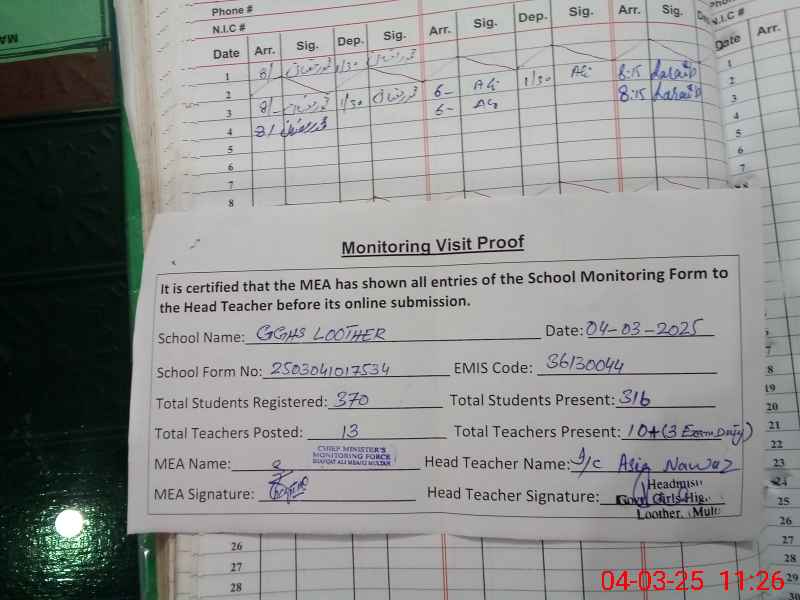 Phone #
N.I.C #
Date Arr. Sig. Dep. Sig. Arr. Sig. Dep. Sig. Arr. Sig.
1 8/ 1/30
2 6- AG 1/30 AG 8:15
3 8/ 1/30 6- AG 8:15
4 8/
5
6
7
8
Date Arr.
1
2
3
4
5
6
7
Monitoring Visit Proof
It is certified that the MEA has shown all entries of the School Monitoring Form to
the Head Teacher before its online submission.
School Name: GGHS LOOTHER Date: 04-03-2025
School Form No: 2503041017534 EMIS Code: 36130044
Total Students Registered: 370 Total Students Present: 316
Total Teachers Posted: 13 Total Teachers Present: 10+(3 Exam Duty)
CHIEF MINISTER'S
MONITORING FORCE
MEA Name: Head Teacher Name: I/C Asia Nawaz
MEA Signature: Head Teacher Signature:
Headmist
Govt. Girls Hig.
Loother, Mult
19
20
21
22
23
24
25
26
27
28
26
27
28
29
30
04-03-25 11:26